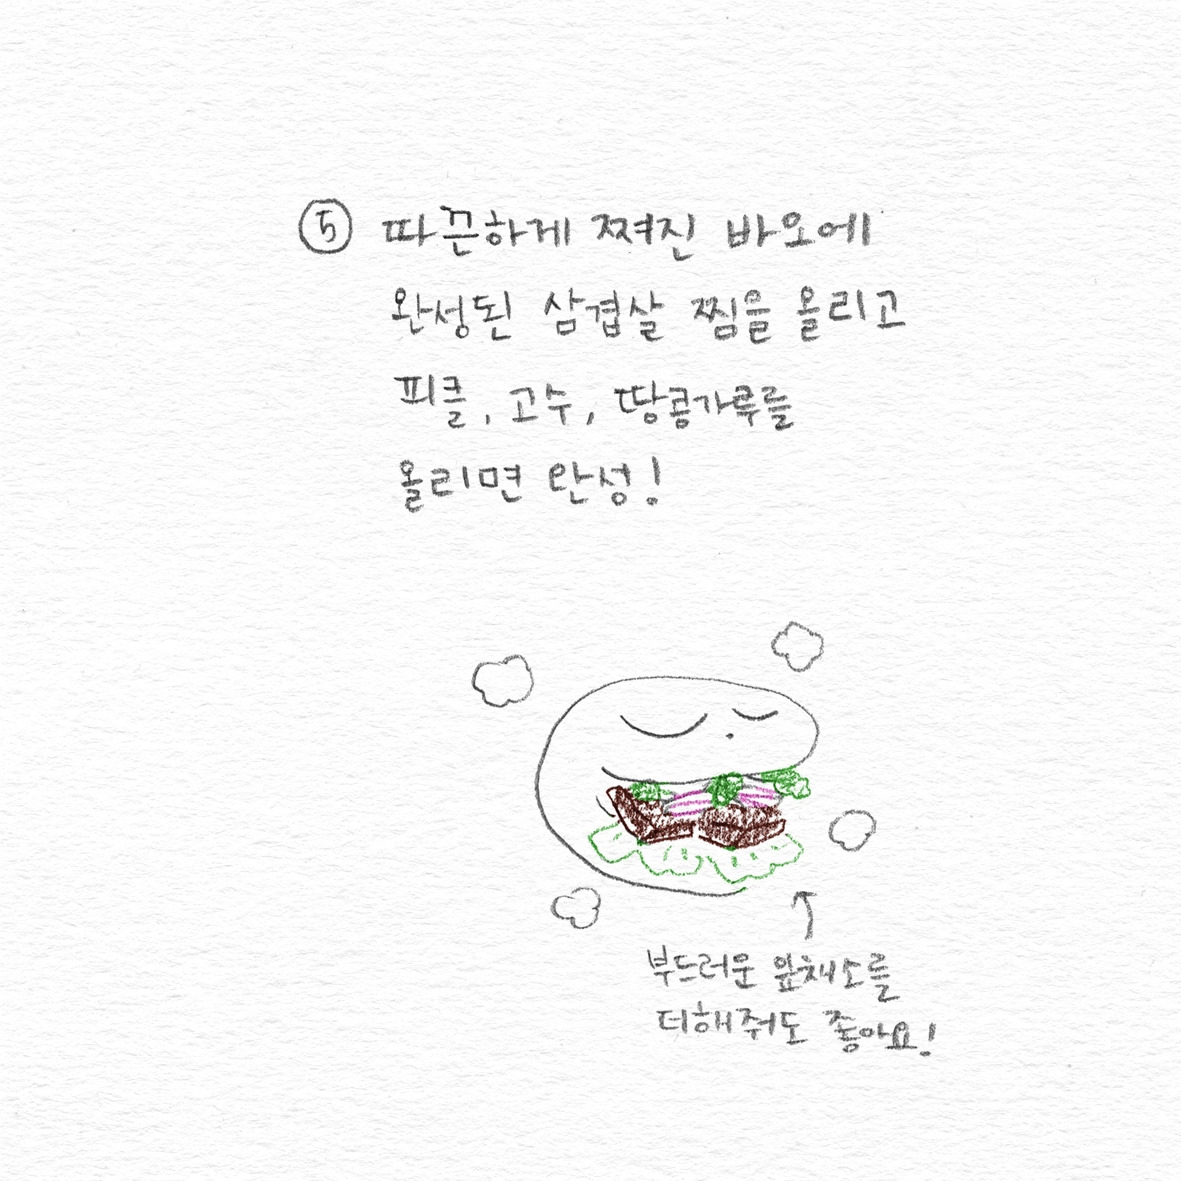 ⑤ 따끈하게 쪄진 바오에
완성된 삼겹살 찜을 올리고
피클, 고수, 땅콩가루를
올리면 완성!
부드러운 잎채소를
더해줘도 좋아요!